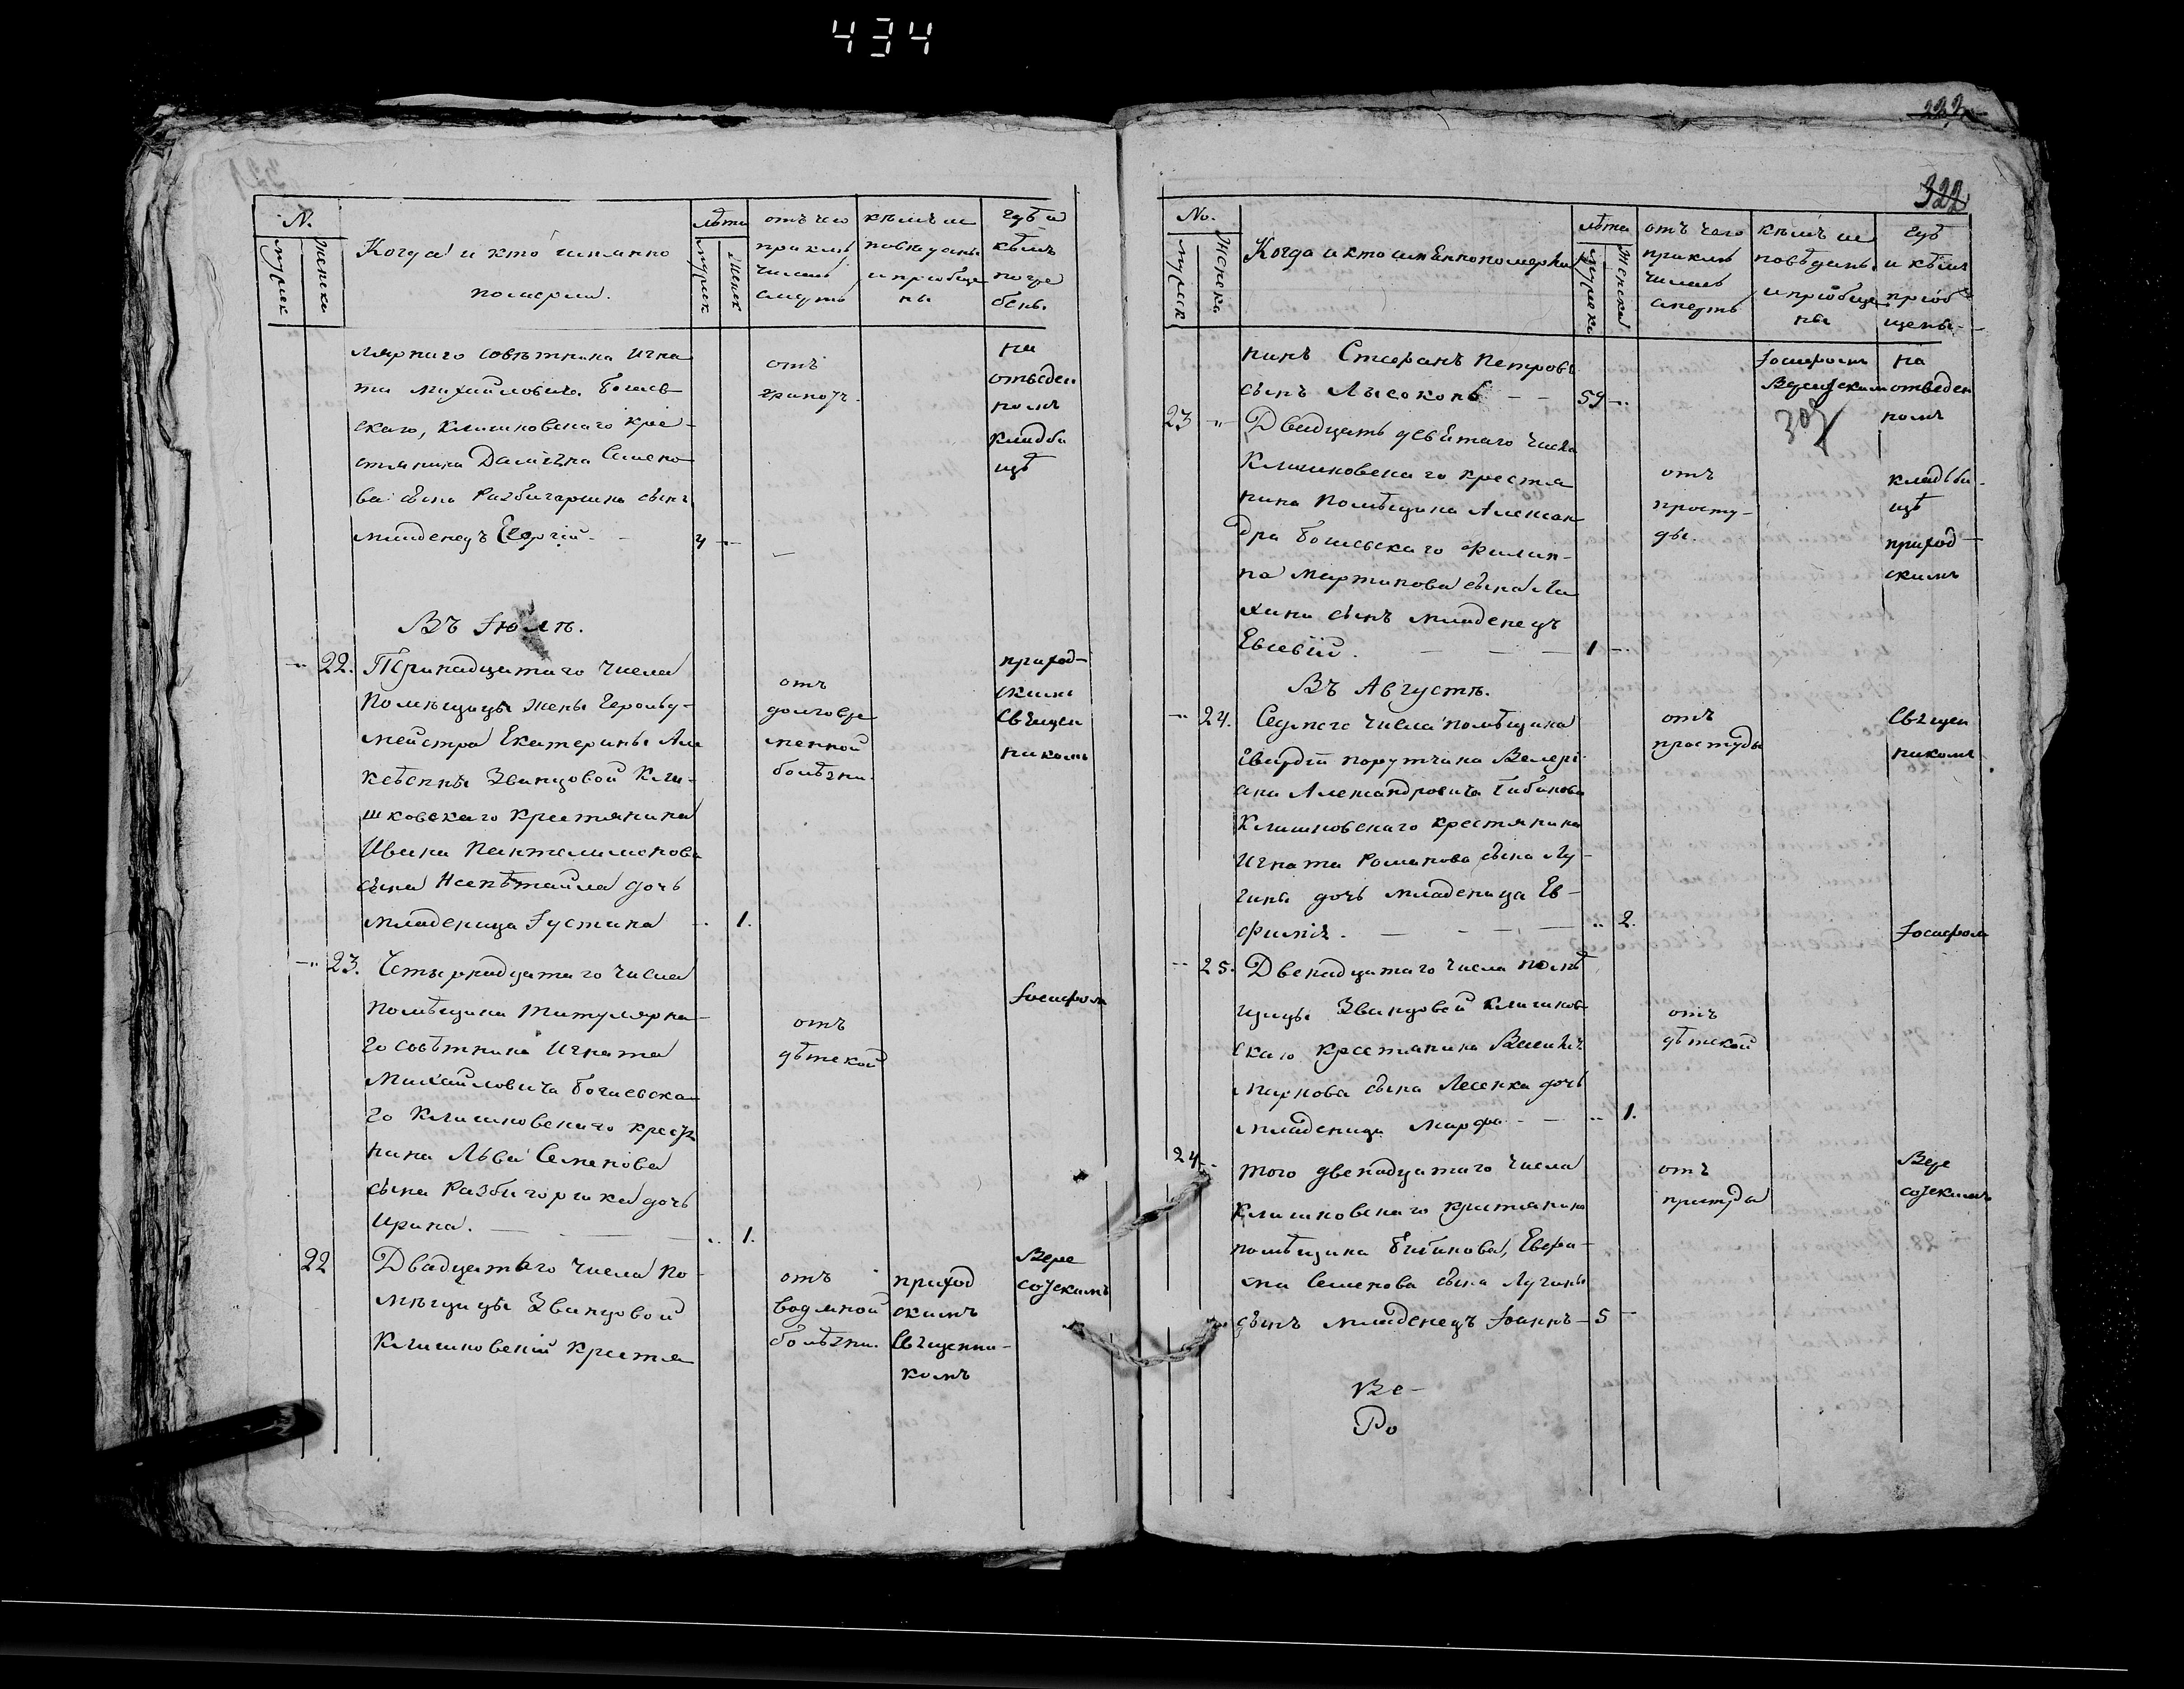 434
№.
мужск
женска
Когда и кто имянно
померли.
лѣта
мужск
женск
отъ чего
приклю
чилась
смерть
кѣмъ ис
повѣданы
и приобще
ны
гдѣ и
кѣмъ
погре
бены.
лярнаго совѣтника Игна
тія Михайловича Богаев
скаго, Клишковскаго кре-
стянина Даміана Семено
ва сына Разбигаршка сынъ
младенецъ Георгій - - 4 --
отъ
на
отведен
номъ
кладби
щѣ
Въ Іюлѣ.
-- 22. Трнанадцатаго числа
помѣщицы жены
мейстра Екатерины Але
ксѣевны Званцовой Кли-
шковскаго крестянина
Ивана Пантелимонова
сына дочь
младеница Іустина -- 1.
отъ
долговре
менной
болѣзни.
приход-
скимъ
священ
никомъ
-- 23. Четырнадцатаго числа
помѣщика титулярна-
го совѣтника Игната
Михайловича Богаевска-
го Клишковскаго крестя
нина Льва Семенова
сына Разбигоршка дочь
Ирина. — — — .. 1.
отъ
дѣтской
Іосифом
22 Двадцатаго числа по-
мѣщицы Званцовой
Клишковскій крестя
отъ
водяной
болѣзни.
приход
скимъ
священни-
комъ
Вере
соцскимъ
222
322
No.
мужск
женска
Когда и кто имянно померли
лѣта
мужска
женска
отъ чего
приклю
чилась
смерть
кѣмъ ис
повѣданы
и пріобще
ны
гдѣ
и кѣмъ
пріоб
щены
нинъ Стефанъ Петровъ
сынъ Лысоконь - - 59 -..
Іосифомъ
на
отведен
номъ
23 -- Двадцать девятаго числа
Клишковскаго крестя
нина помѣщика Алексан
дра Богаевскаго Филип-
па Мартинова сына Ли
хина сынъ младенецъ
Евсевій. — — — 1 -.
отъ
просту-
ды.
кладби-
щѣ
приход-
скимъ
Въ Августѣ.
-- 24. Седмого числа помѣщика
Гвардіи порутчика Валері
ана Александровича
Клишковскаго крестянина
Игната Романова сына Лу-
гина дочь младеница Ев-
фимія. — - - — .. 2.
отъ
простуды
священ
никомъ
Іосифом
-- 25. Двенадцатаго числа помѣ
щицы Званцовой Клишков
скаго крестянина Василія
Маркова сына Лесенка дочь
младеница Марфа - — .. 1.
отъ
дѣтской
24 -. того двенадцатаго числа
Клишковскаго крестянина
помѣщика
Семенова сына Лугина
сынъ младенецъ Іоаннъ - 5 -
отъ
простуды
Вере
соцскимъ
Ве-
Ро